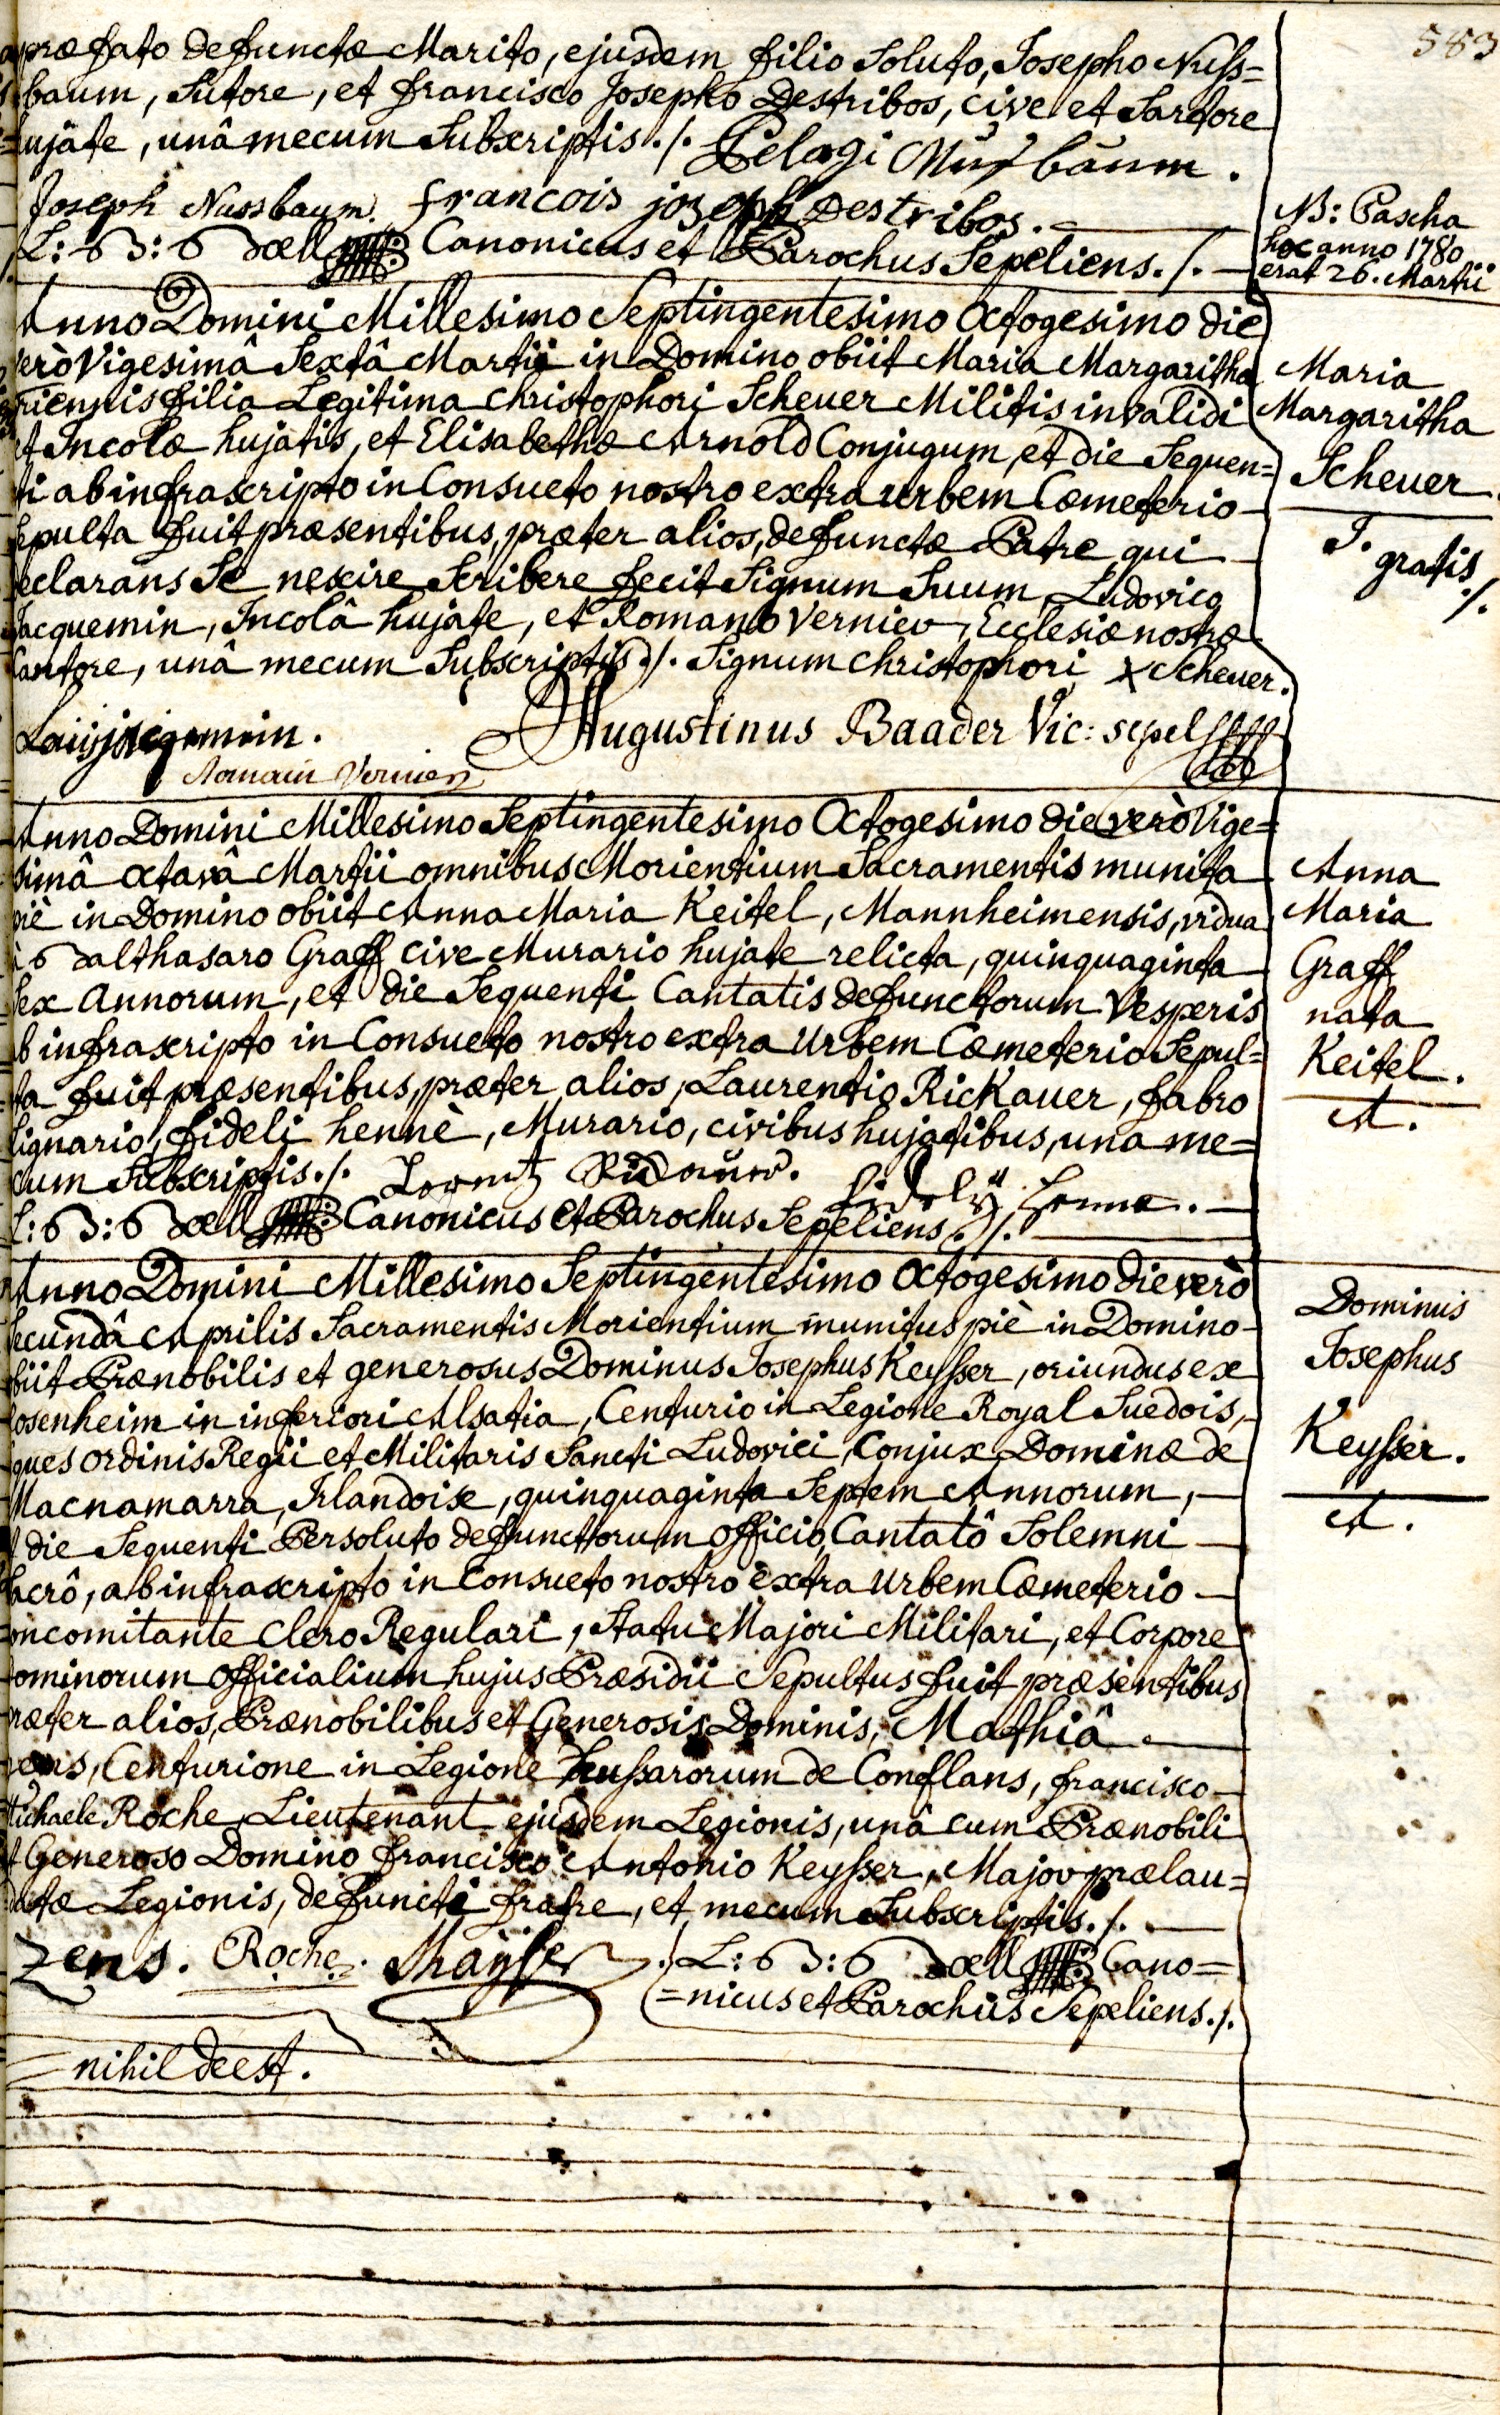 583
præfato defunctæ Marito, ejusdem filio Soluto, Josepho Nuss=
baum, Sutore, et francisco Josepho Destribos, cive et Sartore
hujate, unâ mecum Subscriptis ./. Pelagi Nußbaum.
Joseph Nussbaum. francois joseph Destribos.
L: B: Bœll Canonicus et Parochus Sepeliens ./.
NB: Pascha
hoc anno 1780
erat 26. Martii
Anno Domini Millesimo Septingentesimo Octogesimo die
verò Vigesimâ Sextâ Martii in Domino obiit Maria Margaritha
triennis filia Legitima Christophori Scheuer Militis invalidi
et Incolæ hujatis, et Elisabethæ Arnold Conjugum, et die Sequen=
ti ab infrascripto in Consueto nostro extra urbem Cœmeterio
sepulta fuit præsentibus, præter alios, defunctæ Patre qui
declarans Se nescire Scribere fecit Signum Suum, Ludovico
Jacquemin, Incolâ hujate, et Romano Vernier, Ecclesiæ nostræ
Cantore, unâ mecum Subscriptis ./. Signum Christophori X Scheuer.
Augustinus Baader Vic: sepel
Romain Vernier
Maria
Margaritha
Scheuer.
T.
gratis
./.
Anno Domini Millesimo Septingentesimo Octogesimo die verò Vige=
simâ octavâ Martii omnibus Morientium Sacramentis munita
piè in Domino obiit Anna Maria Keitel, Mannheimensis, vidua
à Balthasaro Graff cive Murario hujate relicta, quinquaginta
Sex Annorum, et die Sequenti Cantatis defunctorum Vesperis
ab infrascripto in Consueto nostro extra Urbem Cœmeterio Sepul=
ta fuit præsentibus, præter alios, Laurentio Rickauer, fabro
lignario, fideli hennè, Murario, civibus hujatibus, una me=
cum Subscriptis ./. Lorentz Rickauer. fidely henne.
L: B: Bœll Canonicus et Parochus Sepeliens ./.
Anna
Maria
Graff
nata
Keitel.
A.
Anno Domini Millesimo Septingentesimo Octogesimo die verò
Secundâ Aprilis Sacramentis Morientium munitus piè in Domino
obiit Prænobilis et generosus Dominus Josephus Keysser, oriundus ex
Rosenheim in inferiori Alsatia, Centurio in Legione Royal Suedois,
Eques ordinis Regii et Militaris Sancti Ludovici, Conjux Dominæ de
Macnamarra, Irlandoise, quinquaginta Septem Annorum,
et die Sequenti Persoluto defunctorum officio, Cantatô Solemni
Sacrô, ab infrascripto in Consueto nostro extra Urbem Cœmeterio
concomitante Clero Regulari, Statu Majori Militari, et Corpore
Dominorum Officialium hujus Præsidii Sepultus fuit præsentibus
præter alios, Prænobilibus et Generosis Dominis, Mathiâ
Zens, Centurione in Legione Hussarorum de Conflans, francisco
Michaele Roche, Lieutenant ejusdem Legionis, unâ cum Prænobili
et Generoso Domino francisco Antonio Keysser, Major prælau=
datæ Legionis, defuncti fratre, et mecum Subscriptis ./.
Zens. Roche. Khayser L: B: Bœll Cano=
=nicus et Parochus Sepeliens ./.
Dominus
Josephus
Keysser.
A.
nihil deest.